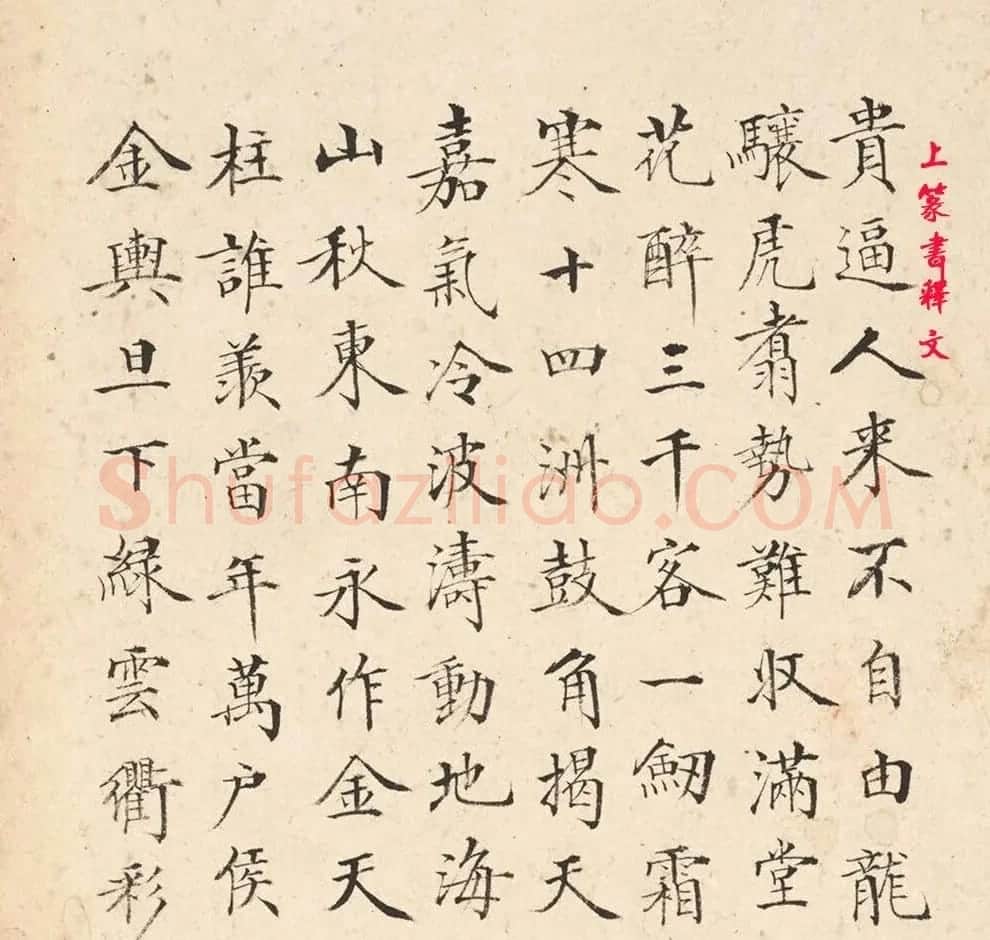 上篆書釋文
貴逼人来不自由龍
驤虎翥勢難収滿堂
花醉三千客一劒霜
寒十四洲鼓角揭天
嘉氣冷波濤動地海
山秋東南永作金天
柱誰羨當年萬户侯
金輿旦下緑雲衢彩
Shufazilido.COM